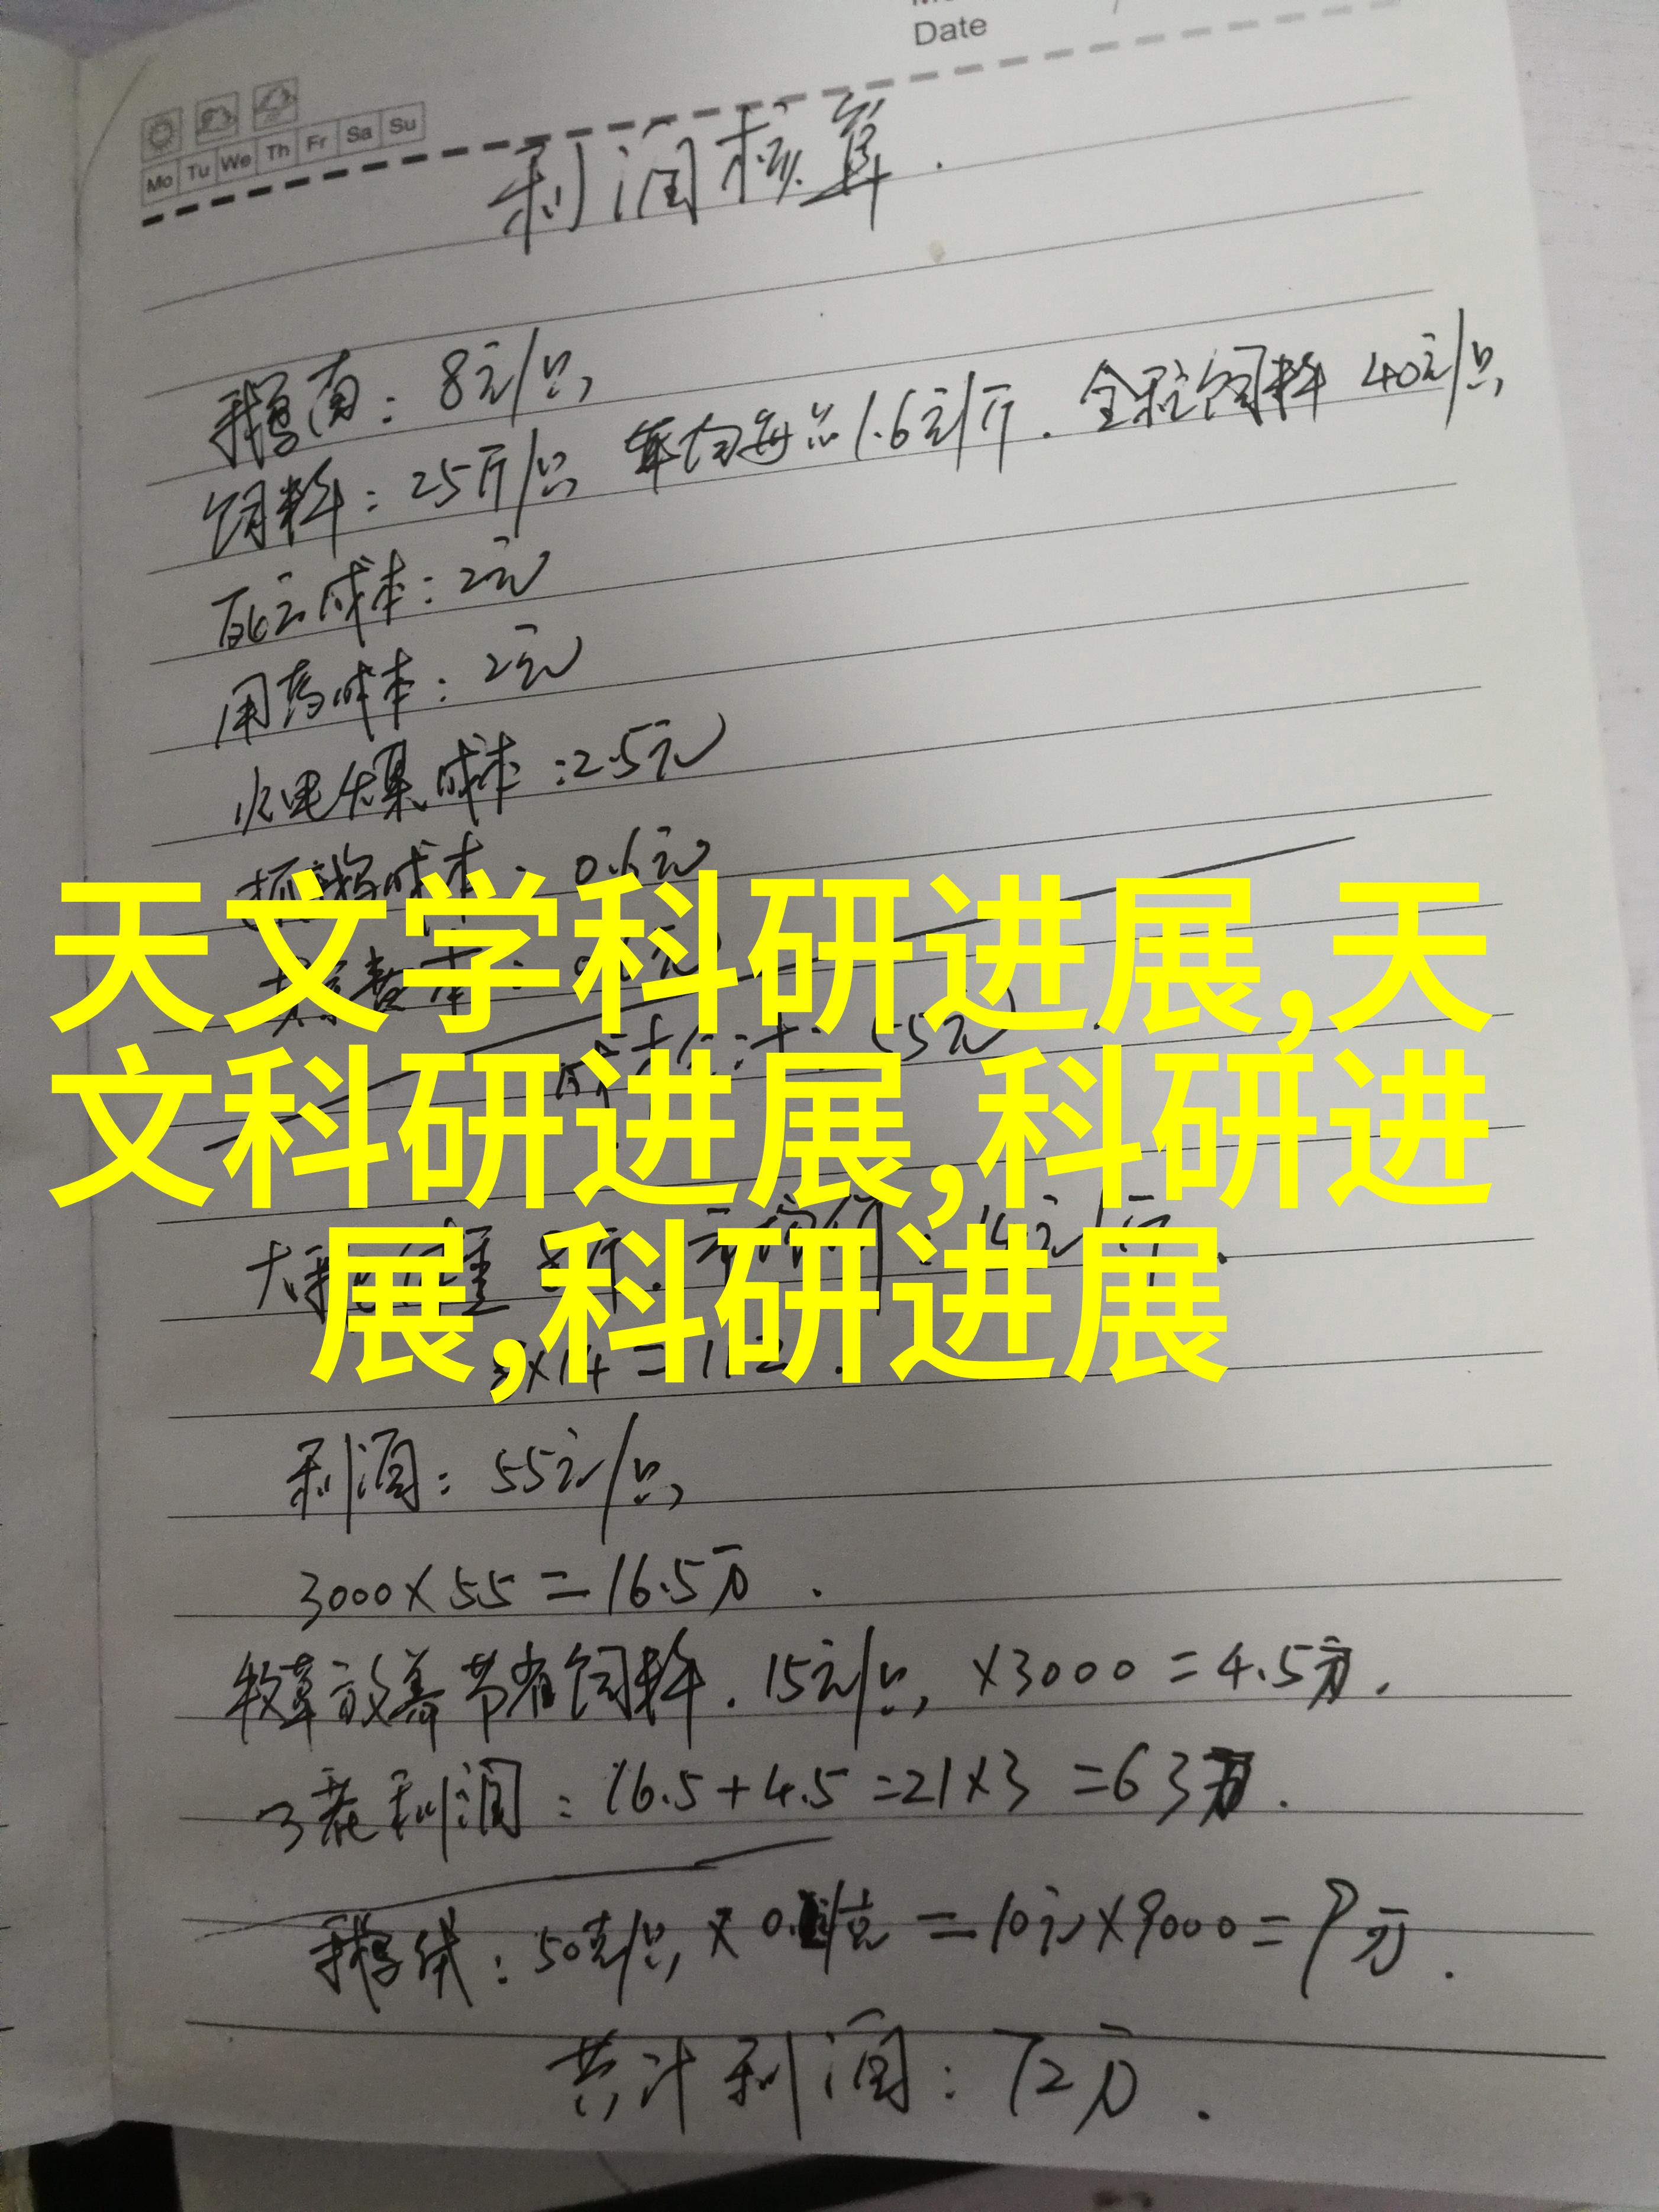 Date
Mo Tu We Th Fr Sa Su
利润核算.
鹅苗: 8元/只
饲料: 25斤/只 平均每斤1.6元/斤. 全程饲料 40元/只
死亡成本: 2元
用药成本: 2元
水电煤成本: 2.5元
成本: 0.6元
天文学科研进展,天
合计: 55元
文科研进展,科研进
展,科研进展
利润: 55元/只
3000×55=16.5万.
牧草放养节省饲料. 15元/只, ×3000=4.5万.
3茬利润: 16.5+4.5=21×3=63万.
鹅绒: 50克/只 × =10元×9000=9万.
共计利润: 72万.